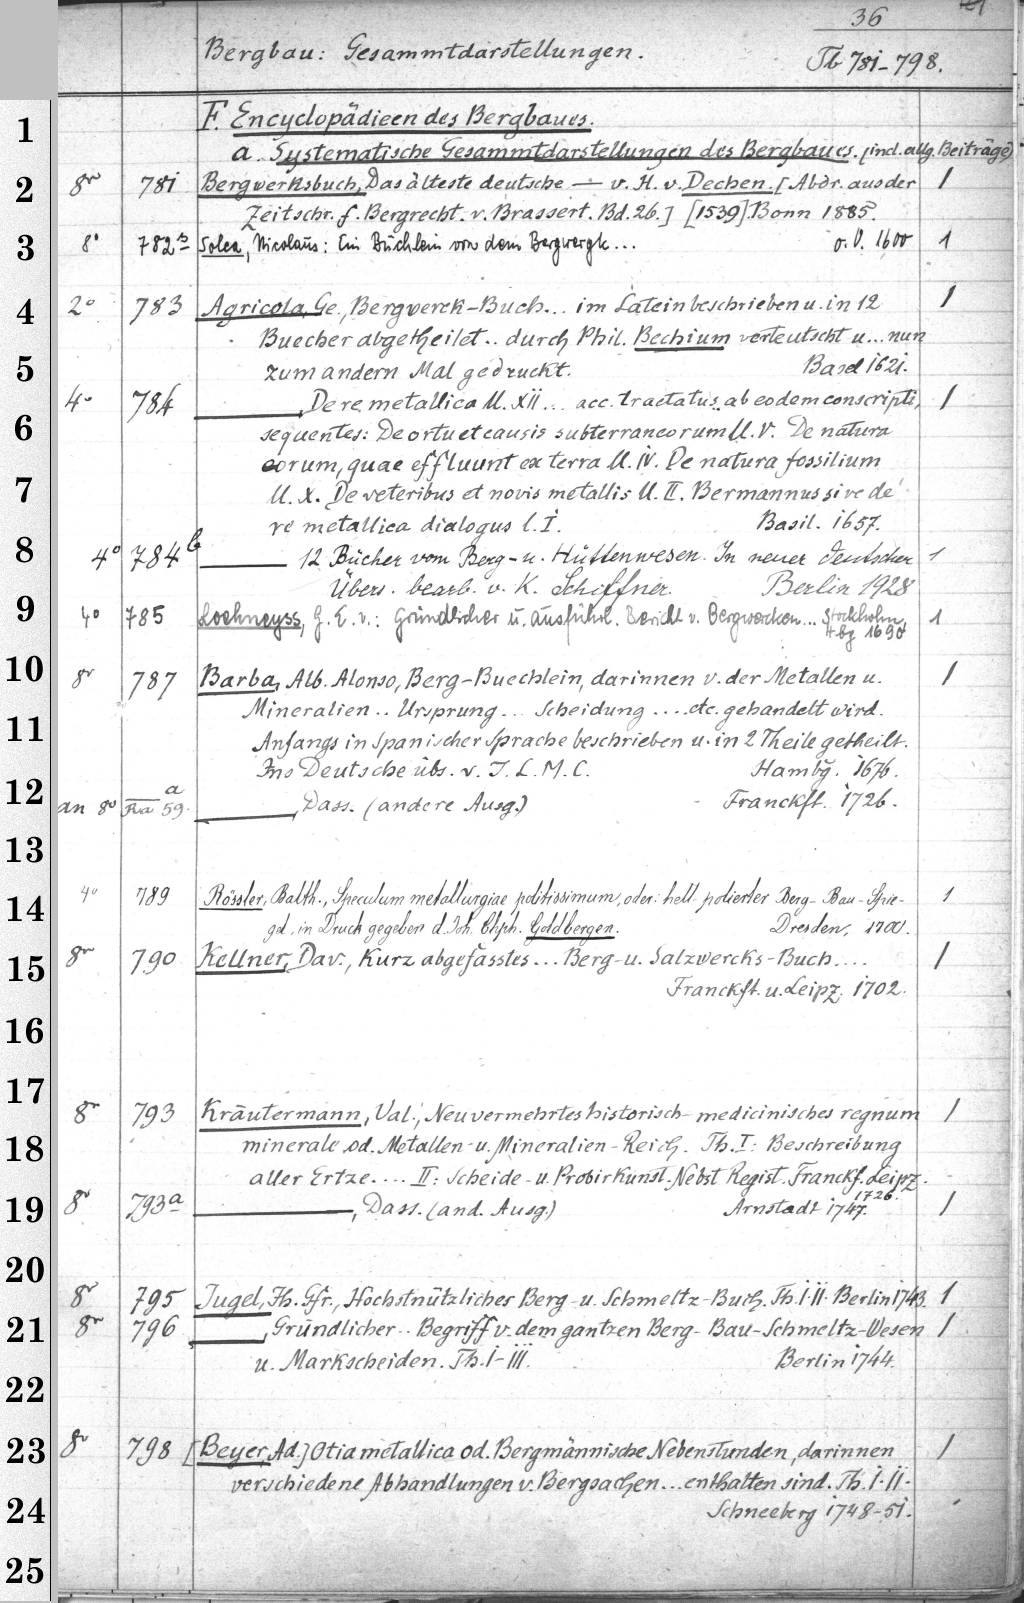 36
Bergbau: Gesammtdarstellungen.
Tb 781-798.
F. Encyclopädieen des Bergbaues.
1
a. Systematische Gesammtdarstellungen des Bergbaues. (incl. allg. Beiträge)
2 8vo 781 Bergwerksbuch, Das älteste deutsche — v. H. v. Dechen. [Abdr. aus der 1
Zeitschr. f. Bergrecht. v. Brassert. Bd. 26.] [1539] Bonn 1885.
3 8° 782 Solea, Nicolaus: Ein Büchlein von dem Bergwergk... o. O. 1600 1
4 2° 783 Agricola, Ge., Bergwerck-Buch... im Latein beschrieben u. in 12 1
Buecher abgetheilet.. durch Phil. Bechium verteutscht u... nun
5 zum andern Mal gedruckt. Basel 1621.
4° 784 ———, De re metallica ll. XII... acc. tractatus.. ab eodem conscripti, 1
6 sequentes: De ortu et causis subterraneorum ll. V. De natura
eorum, quae effluunt ex terra ll. IV. De natura fossilium
7 ll. X. De veteribus et novis metallis ll. II. Bermannus sive de
re metallica dialogus l. I. Basil. 1657.
8 4° 784b ——— 12 Bücher vom Berg- u. Hüttenwesen. In neuer deutscher 1
Übers. bearb. v. K. Schiffner. Berlin 1928
9 4° 785 Loehneyss, G. E. v.: Gründlicher u. ausführl. Bericht v. Bergwercken... Stockholm, 1
Hbg 1690
10 8vo 787 Barba, Alb. Alonso, Berg-Buechlein, darinnen v. der Metallen u. 1
Mineralien.. Ursprung... Scheidung.... etc. gehandelt wird.
11 Anfangs in Spanischer Sprache beschrieben u. in 2 Theile getheilt.
Ins Deutsche übs. v. J. L. M. C. Hambg. 1676.
12 an 8° Ra 59a ———, Dass. (andere Ausg.) Franckft. 1726.
13
14 4° 789 Rössler, Balth., Speculum metallurgiae politissimum, oder: hell polierter Berg-Bau-Spie- 1
gel, in Druck gegeben d. Joh. Chph. Goldbergen. Dresden, 1700.
15 8vo 790 Kellner, Dav., Kurz abgefasstes... Berg- u. Salzwercks-Buch.... 1
Franckft. u. Leipz. 1702.
16
17
8vo 793 Kräutermann, Val., Neuvermehrtes historisch-medicinisches regnum 1
18 minerale od. Metallen- u. Mineralien-Reich. Th. I: Beschreibung
aller Ertze.... II: Scheide- u. Probirkunst. Nebst Regist. Franckf. Leipz.
1726.
19 8° 793a ———, Dass. (and. Ausg.) Arnstadt 1747. 1
20
8vo 795 Jugel, Jh. Gfr., Höchstnützliches Berg- u. Schmeltz-Buch. Th. I-II. Berlin 1743. 1
21 8vo 796 ———, Gründlicher.. Begriff v. dem gantzen Berg-Bau-Schmeltz-Wesen 1
u. Markscheiden. Th. I-III. Berlin 1744.
22
23 8° 798 [Beyer, Ad.] Otia metallica od. Bergmännische Nebenstunden, darinnen 1
verschiedene Abhandlungen v. Bergsachen... enthalten sind. Th. I-II.
24 Schneeberg 1748-51.
25